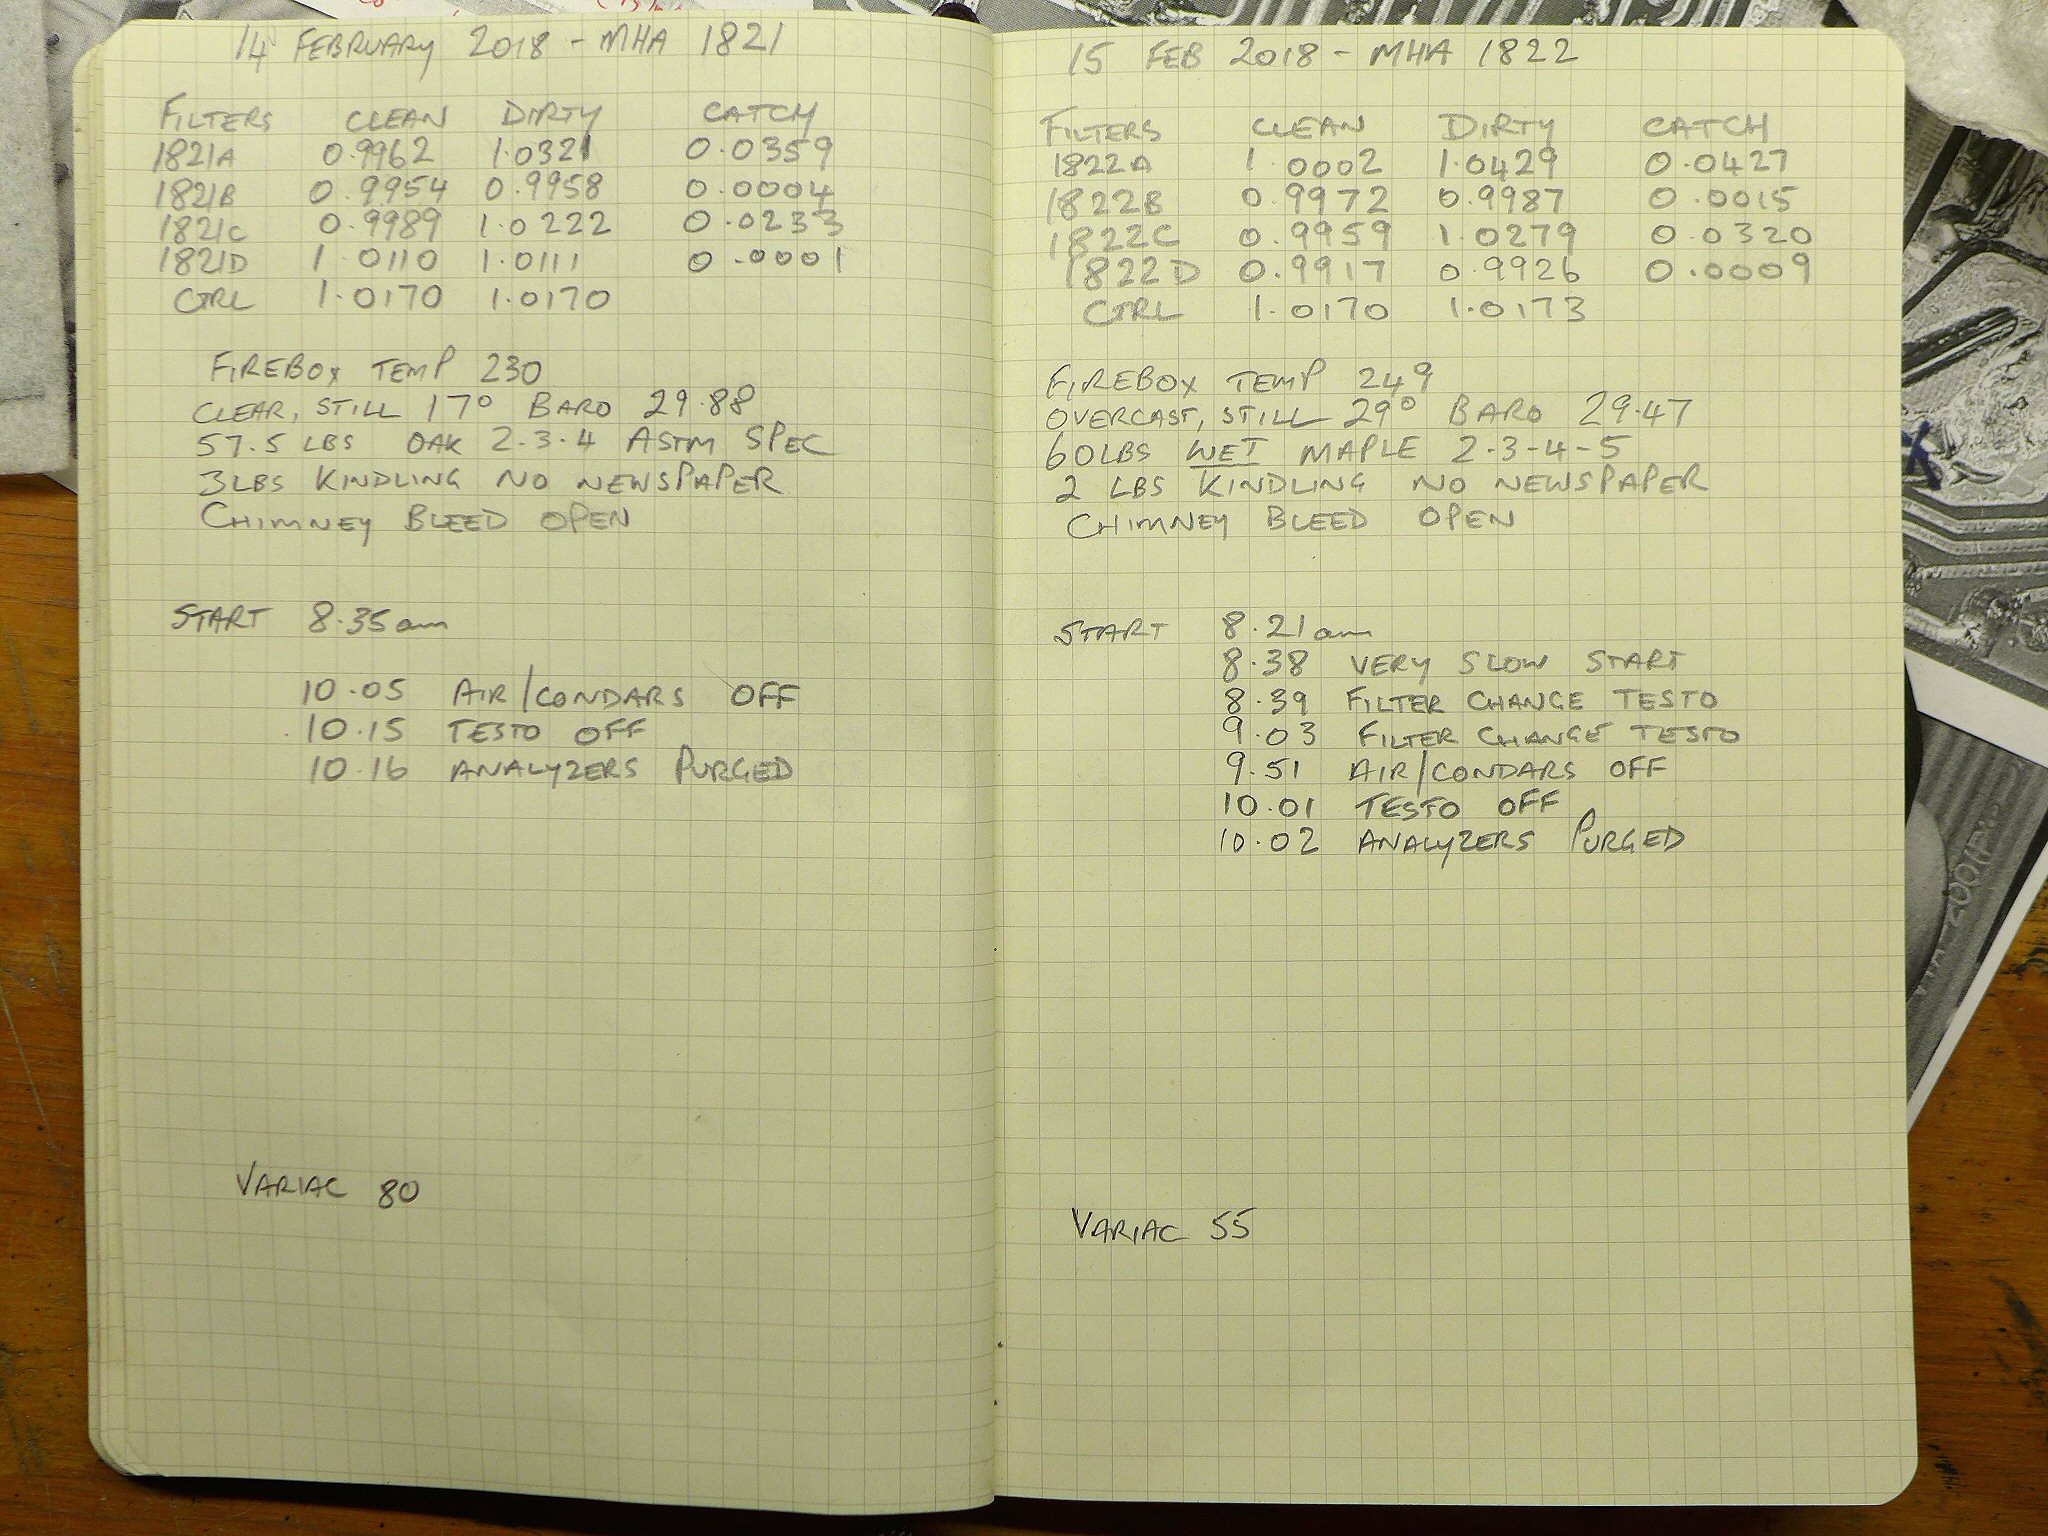 14 FEBRUARY 2018 - MHA 1821
FILTERS CLEAN DIRTY CATCH
1821A 0.9962 1.0321 0.0359
1821B 0.9954 0.9958 0.0004
1821C 0.9989 1.0222 0.0233
1821D 1.0110 1.0111 0.0001
CTRL 1.0170 1.0170
FIREBOX TEMP 230
CLEAR, STILL 17° BARO 29.88
57.5 LBS OAK 2-3-4 ASTM SPEC
3LBS KINDLING NO NEWSPAPER
CHIMNEY BLEED OPEN
START 8.35am
10.05 AIR/CONDARS OFF
10.15 TESTO OFF
10.16 ANALYZERS PURGED
VARIAC 80
15 FEB 2018 - MHA 1822
FILTERS CLEAN DIRTY CATCH
1822A 1.0002 1.0429 0.0427
1822B 0.9972 0.9987 0.0015
1822C 0.9959 1.0279 0.0320
1822D 0.9917 0.9926 0.0009
CTRL 1.0170 1.0173
FIREBOX TEMP 249
OVERCAST, STILL 29° BARO 29.47
60LBS WET MAPLE 2-3-4-5
2 LBS KINDLING NO NEWSPAPER
CHIMNEY BLEED OPEN
START 8.21am
8.38 VERY SLOW START
8.39 FILTER CHANGE TESTO
9.03 FILTER CHANGE TESTO
9.51 AIR/CONDARS OFF
10.01 TESTO OFF
10.02 ANALYZERS PURGED
VARIAC 55